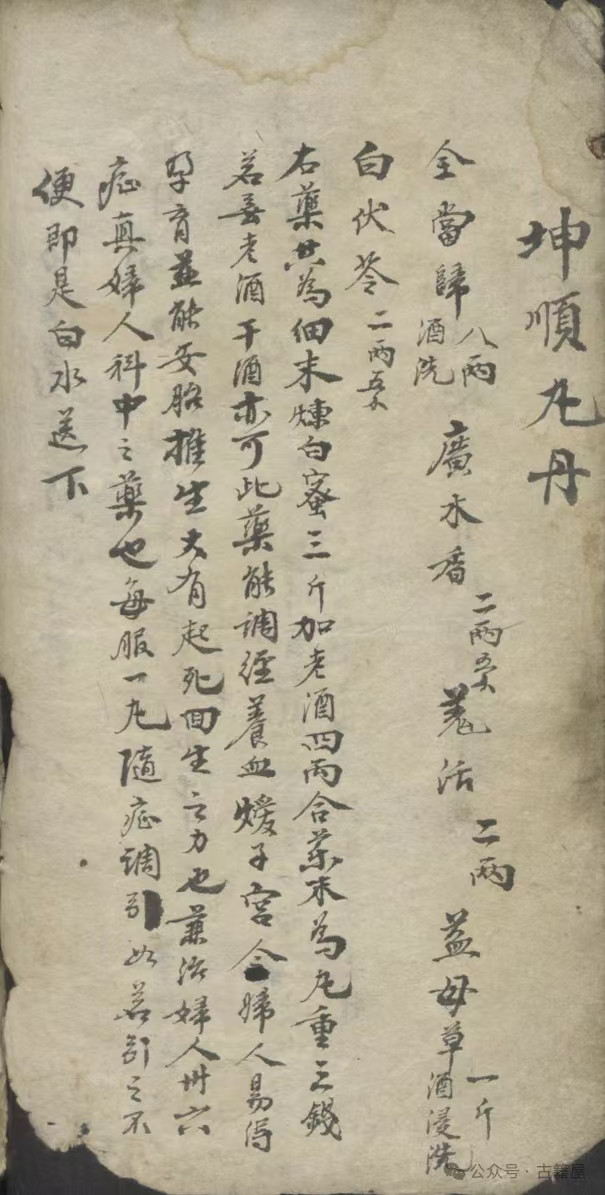 坤順九丹
全當歸 八兩 酒洗 廣木香 二兩五 羌活 二兩 益母草 一斤 酒浸洗
白伏苓 二兩五
右藥共為細末煉白蜜三斤加老酒四兩合藥末為丸重三錢
若無老酒干酒亦可此藥能調經養血煖子宮令婦人易得
孕育並能安胎推生大有起死回生之力也兼治婦人卅六
症真婦人科中之藥也每服一丸隨症調引如若引之不
便即是白水送下
公众号·古籍屋